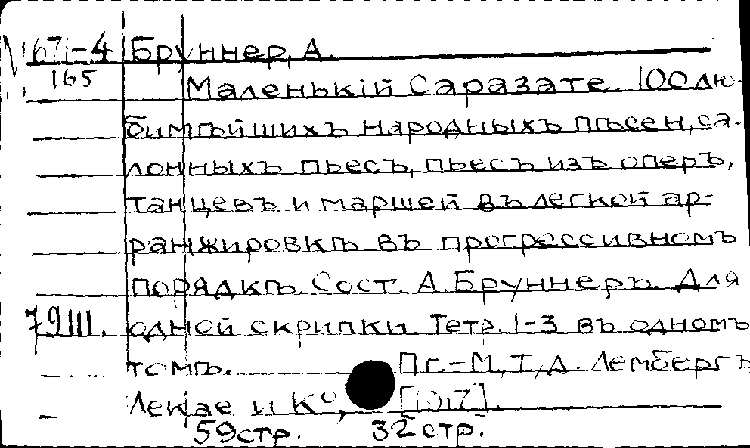 М 67-4 Бруннер, А.
165 Маленькій Саразате. 100 лю-
бимѣйшихъ народныхъ пѣсен, са-
лонныхъ пьесъ, пьесъ изъ оперъ,
танцевъ и маршей въ легкой ар-
ранжировкѣ въ прогрессивномъ
порядкѣ. Сост. А. Бруннеръ. Для
79 III. одной скрипки. Тетр. 1-3 въ одномъ
томѣ. Пг.-М, Т/Д. Лембергъ
и Ко, [1917].
59 стр. 32 стр.